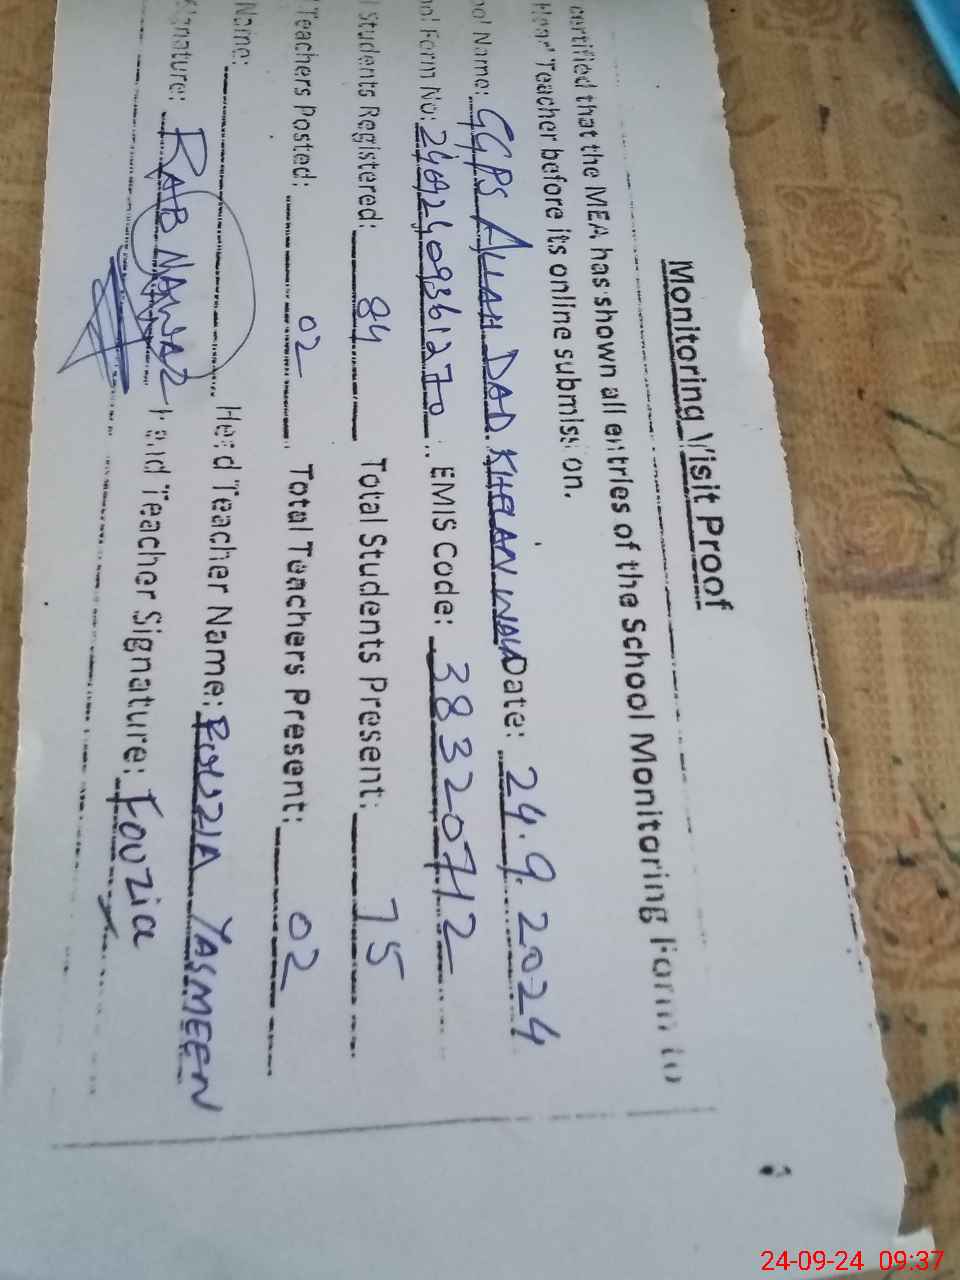 Monitoring Visit Proof
certified that the MEA has shown all entries of the School Monitoring Form to
Head Teacher before its online submission.
ool Name: GGPS ALLAH DAD KHELAN WALA Date: 24.9.2024
ol Form No: EMIS Code: 38320712
l Students Registered: 84 Total Students Present: 75
l Teachers Posted: 02 Total Teachers Present: 02
Name: Head Teacher Name: FOUZIA YASMEEN
Signature: RAB NAWAZ Head Teacher Signature: Fouzia
24-09-24 09:37